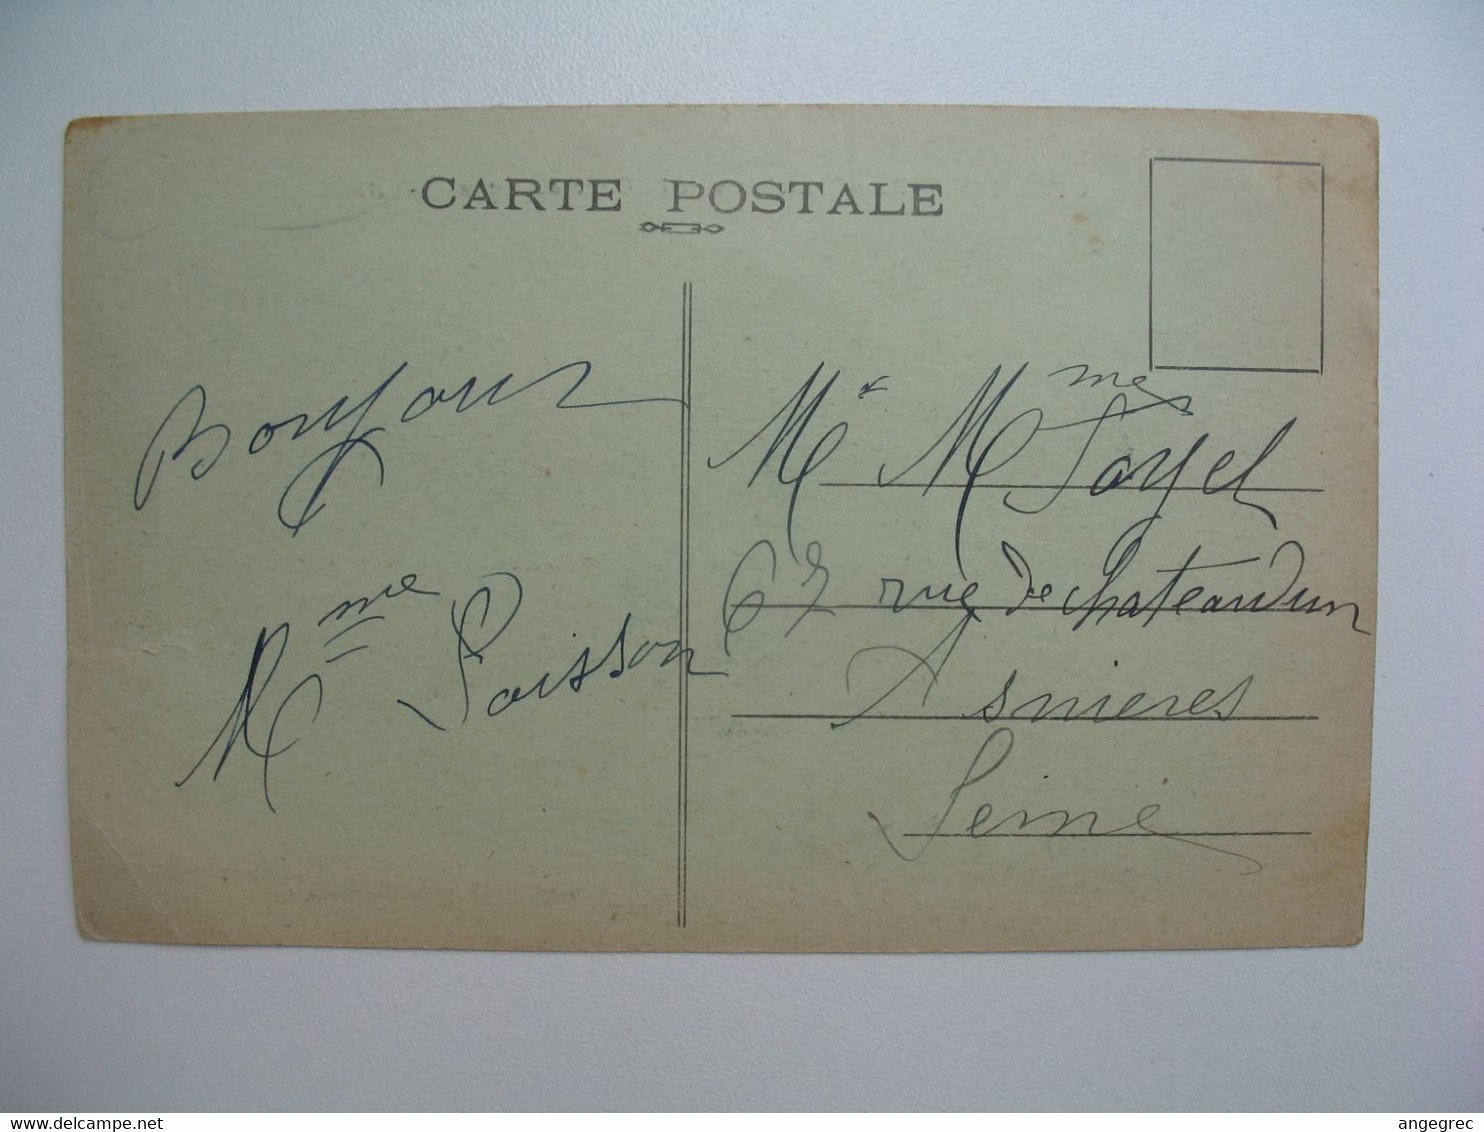 CARTE POSTALE
Bonjour
Mme Poisson
Mr Mme
67 rue de chateaudun
Asnieres
Seine
www.delcampe.net
angegrec